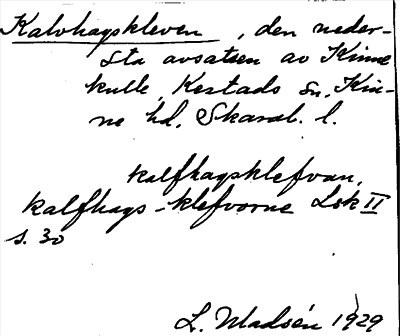 Kalvhagskleven, den neder-
sta avsatsen av Kinne
kulle, Kestads sn, Kin-
ne hd, Skarab. l.
kalfhagsklefvan,
kalfhags-klefvorne Lsk II
s. 30
L. Madsén 1929